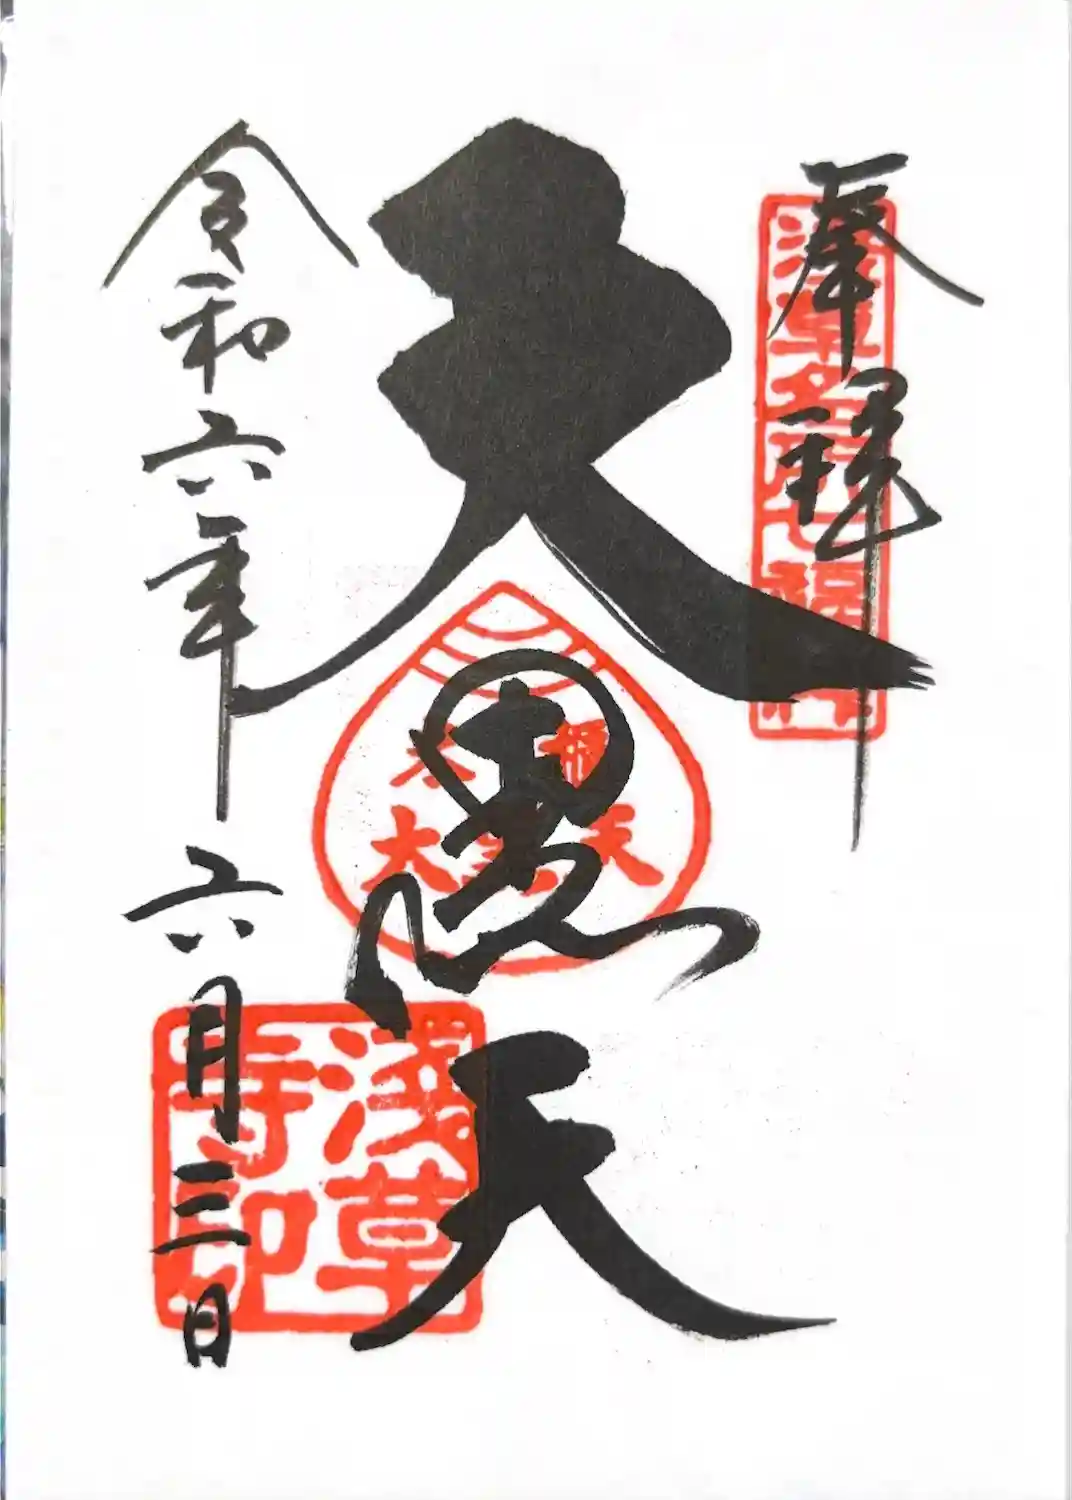 奉拝
浅草名所七福神
大黒天
淺草
寺印
令和六年六月三日